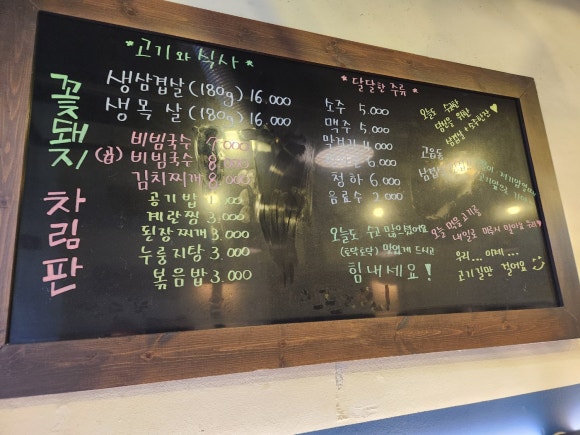 꽃돼지
차림판
*고기와 식사*
생삼겹살 (180g) 16.000
생목살 (180g) 16.000
비빔국수 7.000
(곱) 비빔국수 8.000
김치찌개 8.000
공기밥 1.
계란찜 3.000
된장찌개 3.000
누룽지탕 3.000
볶음밥 3.000
* 달달한 주류 *
소주 5.000
맥주 5.000
막걸리 4.000
6.000
청하 6.000
음료수 2.000
오늘도 수고 많으셨어요
(토닥토닥) 맛있게 드시고
힘내세요!
오늘도 수고한
당신을 위한
삼겹살 + 소주한잔 ♥
고요을
삼겹살
오늘 먹을 고기를
내일로 미루지 말아요 우리 ♥
우리... 이제...
고기길만 걸어요